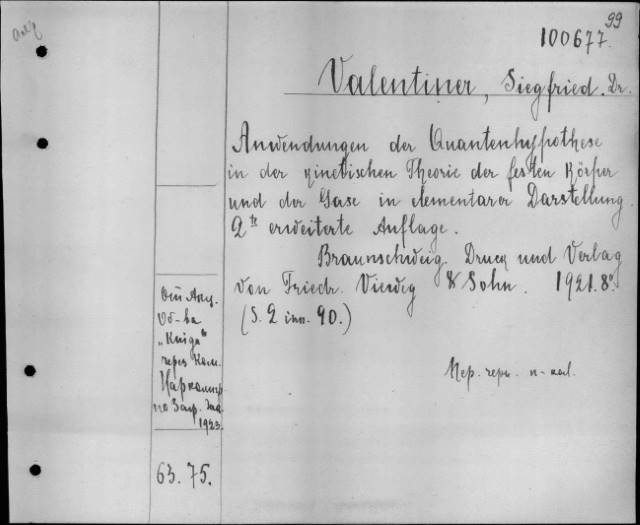 99
100677.
Valentiner, Siegfried. Dr.
Anwendungen der Quantenhypothese
in der kinetischen Theorie der festen Körper
und der Gase in elementarer Darstellung.
2te erweiterte Auflage.
Braunschweig. Druck und Verlag
von Friedr. Vieweg & Sohn. 1921. 8°.
(S. 2 inn. 90.)
О-ва
„Книга"
через Ком.
по Загр.
1923.
63.75.
Пер.